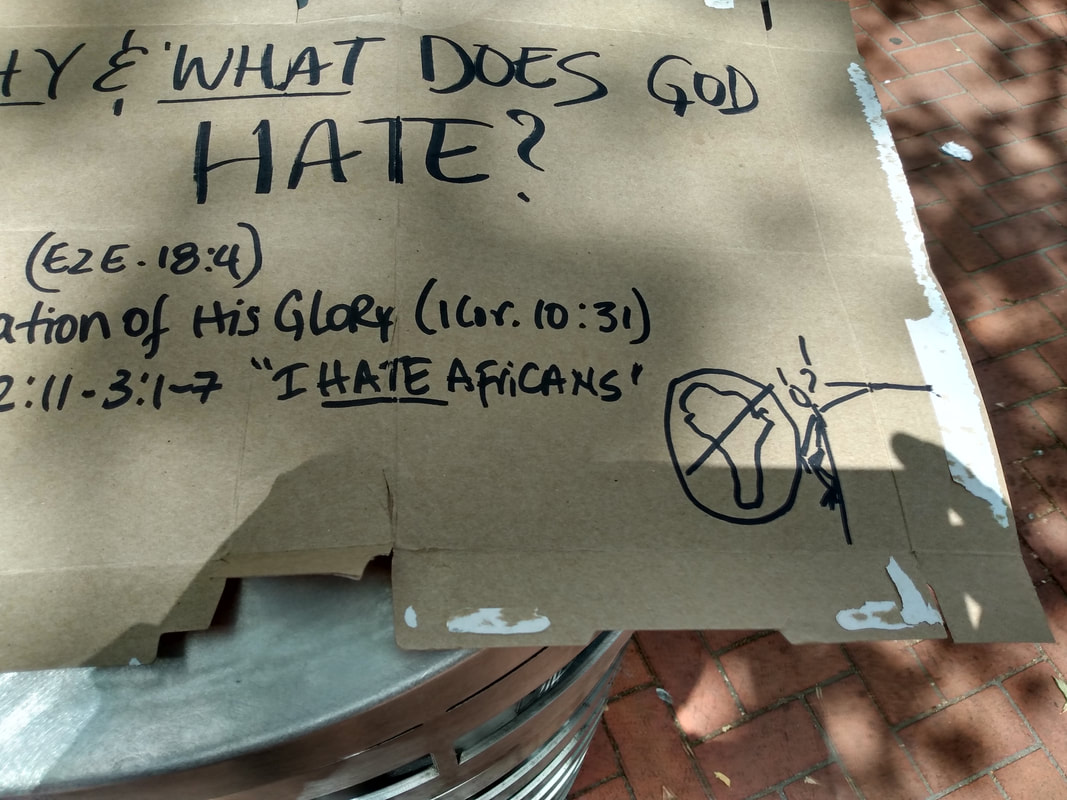 HY & 'WHAT DOES GOD
HATE?
(EZE. 18:4)
ation of His GLORY (1 Cor. 10:31)
2:11-3:1-7 "I HATE AFRiCANS"